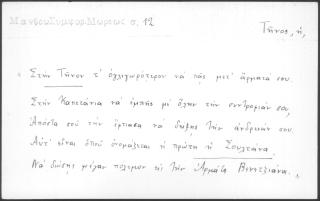 Μανθου Συμφορ. Μωρεως σ. 12
Τῆνος, ἡ,
Στὴν Τῆνον τ' ὀγλιγωρότερον νὰ πᾷς μετ' ἄρματά σου
Στὴν Καπιτάνια νὰ ἐμπῇς μὲ ὅλην τὴν συντροφιάν σου,
Ἀπόστα σοῦ τὴν ἔφτιασα νὰ δώσῃς τὴν ἀνδρειάν σου
Αὐτ' εἶναι ὁποῦ ὀνομάζεται ἡ πρώτη ἡ Σουλτάνα
Νὰ δώσῃς μέγαν πόλεμον εἰς τὴν Ἁρμάδα Βενετζιάνα.